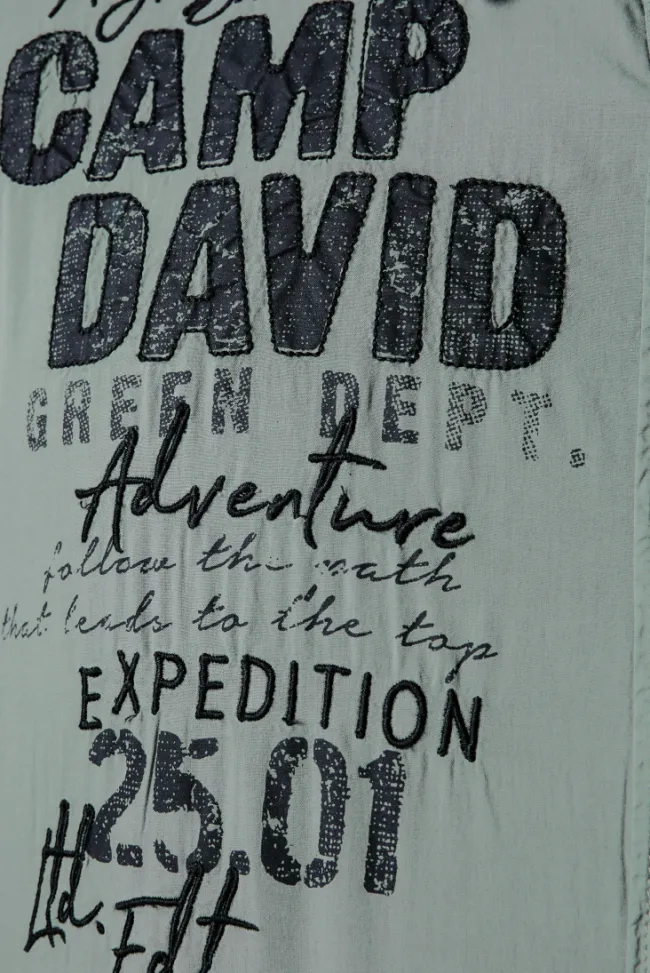 CAMP
DAVID
GREEN DEPT.
Adventure
follow the path
that leads to the top
EXPEDITION
25.01
Ltd.
Edt